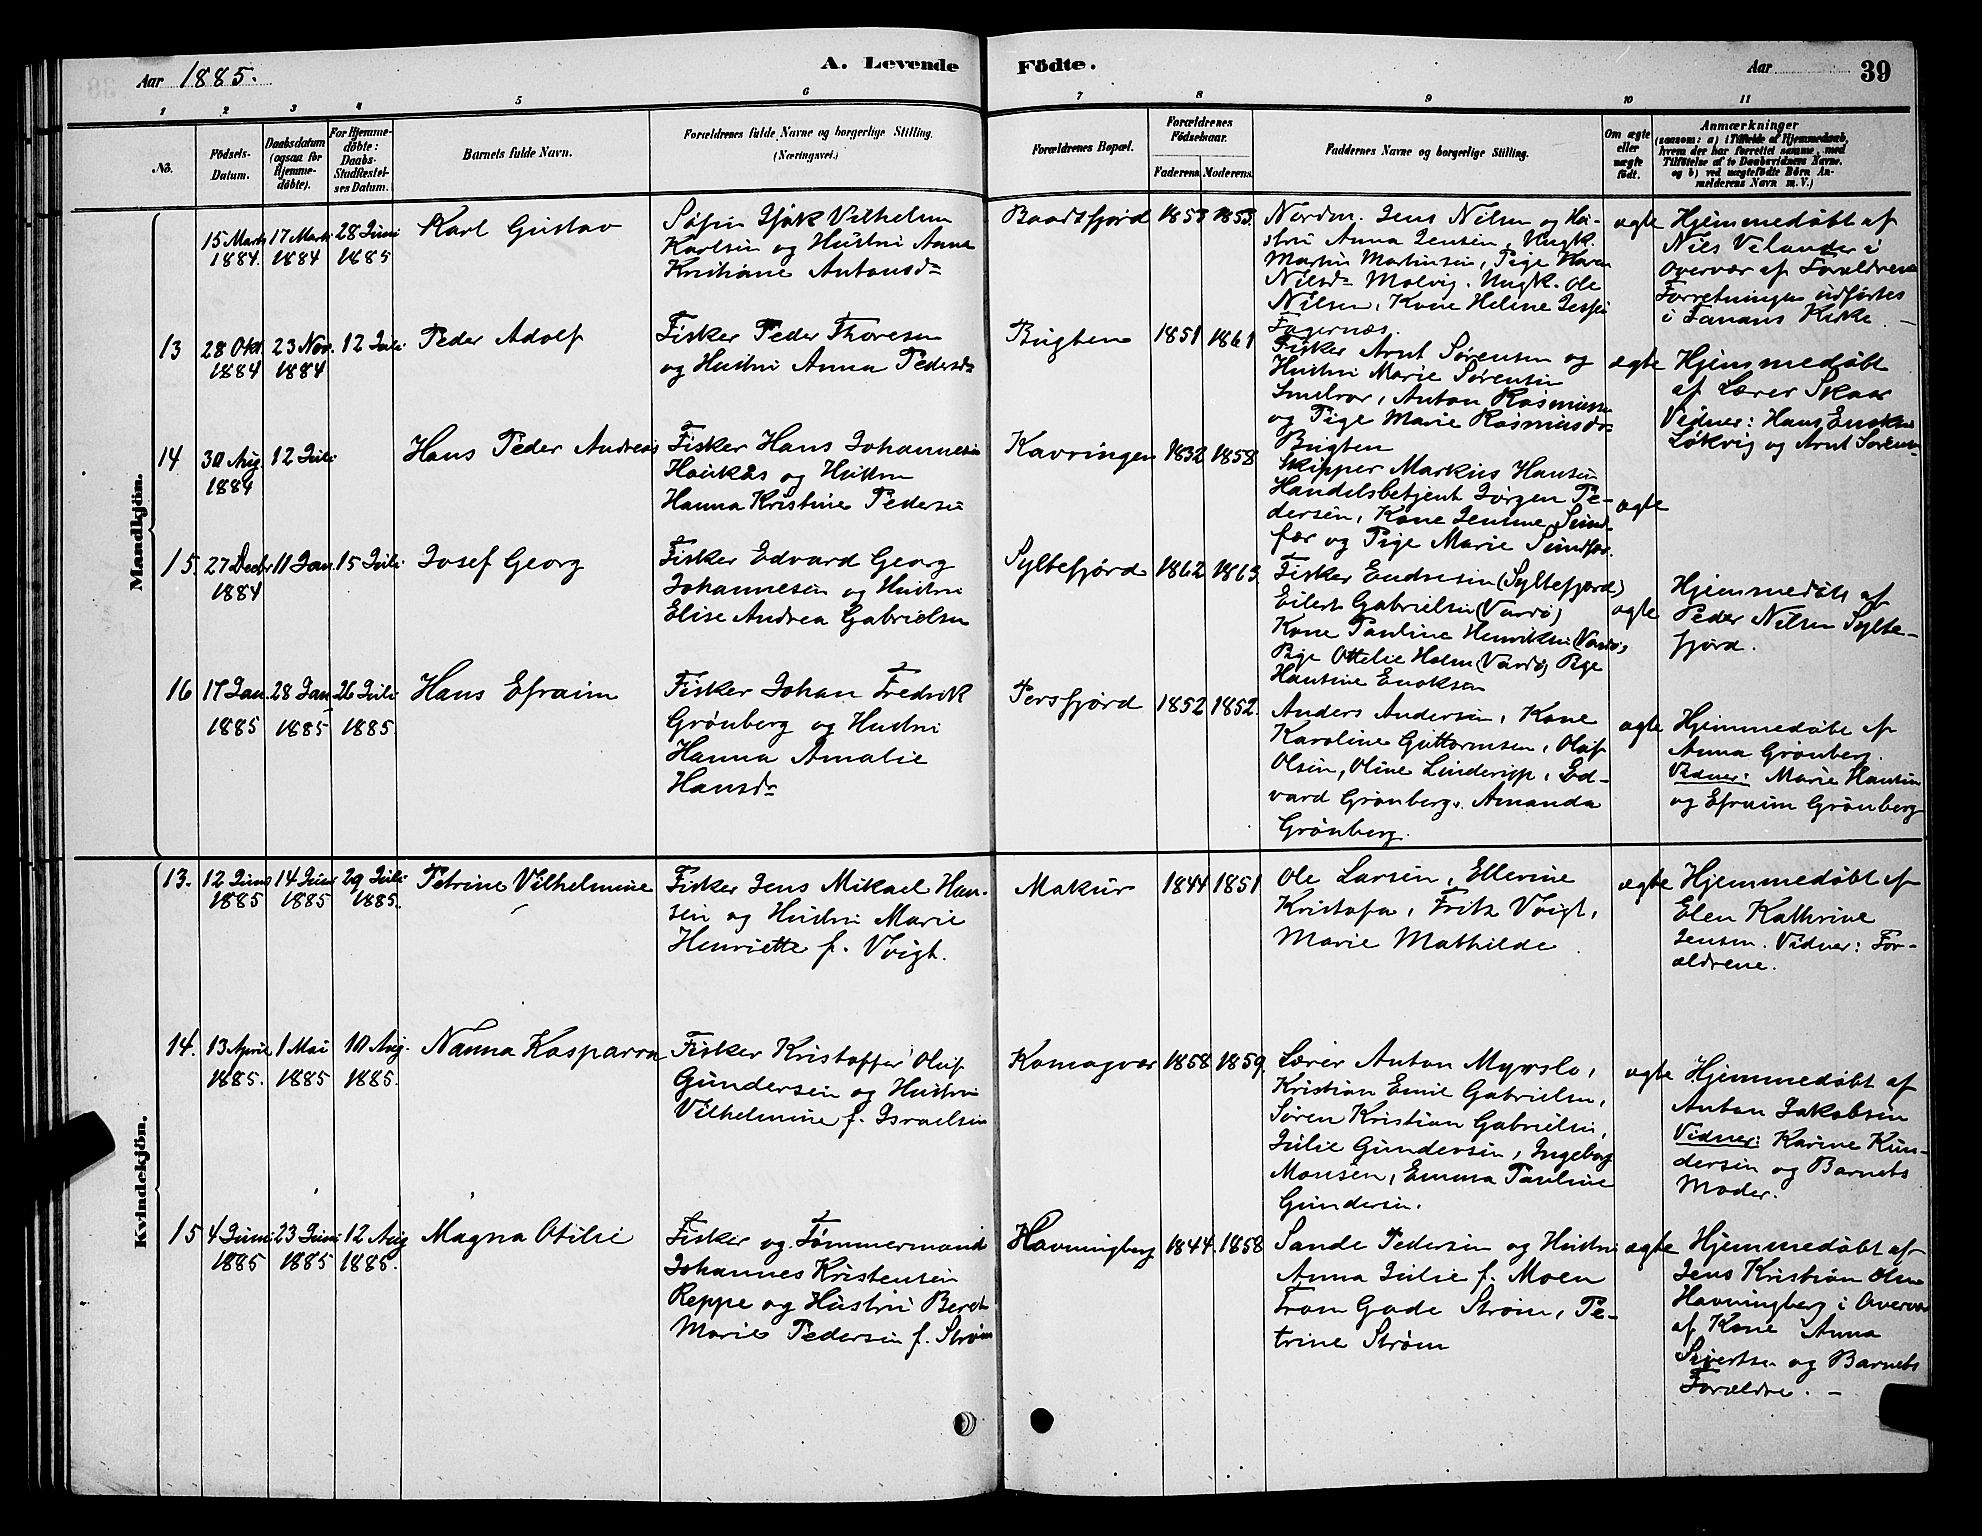 Aar 1885.
A. Levende
Födte.
Aar
39
1 2 3 4 5 6 7 8 9 10 11
No.
Födsels-Datum.
Daabsdatum (ogsaa for Hjemme-döbte).
For Hjemme-döbte: Daabs-Stadfæstel-ses Datum.
Barnets fulde Navn.
Forældrenes fulde Navne og borgerlige Stilling. (Næringsvei.)
Forældrenes Bopæl.
Forældrenes Födselsaar.
Faderens. Moderens.
Faddernes Navne og borgerlige Stilling.
Om ægte eller uægte födt.
Anmærkninger
(saasom: a) i Tilfælde af Hjemmedaab, hvem der har forrettet samme, med Tilföielse af to Daabsvidners Navne. og b) ved uægtefödte Börn An-melderens Navn m. V.)
Mandkjön.
15 Marts 1884.
17 Marts 1884
28 Juni 1885
Karl Gustav
Vilhelm
Karlsen og Hustru Anne
Kristiane Antonsdr
Baadsfjord
1853 1853.
Nordm. Jens Nilsen og Hu-
stru Anna Jensen, Ungk.
Martin Martinsen, Pige Maren
Nilsdr Molvig. Ungk. Ole
Nilsen, Kone Helene
Fagernæs.
ægte
Hjemmedøbt af
Nils Vilander i
Overvær af Forældrene
Forretningen udførtes
i Tanans Kirke. –
13
28 Okt. 1884
23 Nov. 1884
12 Juli
Peder Adolf
Fisker Peder Thoresen
og Hustru Anna Pedersdr
Bugten
1851 1861
Fisker Arnt Sørensen og
Hustru Marie Sørensen
Smelror, Anton Rasmussen
og Pige Marie Rasmusdr
Bugten
ægte
Hjemmedøbt
af Lærer Skaar
Vidner: Hans Enoksen
Løkvig og Arnt Sørensen
14
30 Aug. 1884
12 Juli
Hans Peder Andreas
Fisker Hans Johannesen
Haukås og Hustru
Hanna Kristine Pedersen
Kavringen
1832 1858
Skipper Markus Hansen
Handelsbetjent Jørgen Pe-
dersen, Kone Jensine Sund-
fær og Pige Marie Sundfær.
ægte
15.
27 Decbr 1884
11 Jan.
15 Juli
Josef Georg
Fisker Edvard Georg
Johannesen og Hustru
Elise Andrea Gabrielsen
Syltefjord
1862 1863
Fisker Endresen (Syltefjord)
Eilert Gabrielsen (Vardø)
Kone Pauline Henriksen (Vardø)
Pige Ottelie Holm (Vardø) Pige
Hansine Enoksen
ægte
Hjemmedøbt af
Peder Nilsen Sylte-
fjord.
16
17 Jan. 1885
28 Jan 1885
26 Juli 1885.
Hans Efraim
Fisker Johan Fredrik
Grønberg og Hustru
Hanna Amalie
Hansdr
Persfjord
1852 1852.
Anders Andersen, Kone
Karoline Guttormsen, Oluf
Olsen, Oline Linderup, Ed-
vard Grønberg, Amanda
Grønberg.
ægte
Hjemmedøbt af
Anna Grønberg.
Vidner: Marie Hansen
og Efraim Grønberg
Kvindekjön.
13.
12 Juni 1885
14 Juni 1885
29 Juli 1885.
Petrine Vilhelmine
Fisker Jens Mikael Han-
sen og Hustru Marie
Henriette f. Voigt.
Makur
1844 1851
Ole Larsen, Ellevine
Kristofa, Fritz Voigt,
Marie Mathilde
ægte
Hjemmedøbt af
Elen Kathrine
Jensen. Vidner: For-
ældrene.
14.
13 April 1885.
1 Mai 1885
10 Aug. 1885.
Nanna Kasparra
Fisker Kristoffer Oluf
Gundersen og Hustru
Vilhelmine f. Israelsen
Komagvær
1858 1859.
Lærer Anton Myrslo,
Kristian Emil Gabrielsen,
Søren Kristian Gabrielsen,
Julie Gundersen, Ingeborg
Monsen, Emma Pauline
Gundersen.
ægte
Hjemmedøbt af
Anton Jakobsen
Vidner: Karine Kun-
dersen og Barnets
Moder.
15
4 Juni 1885
23 Juni 1885
12 Aug 1885.
Magna Otilie
Fisker og Tømmermand
Johannes Kristensen
Reppe og Hustru Beret
Marie Pedersen f. Strøm
Havningberg
1844. 1858
Sande Pedersen og Hustru
Anna Julie f. Moen
Tram Gade Strøm, Pe-
trine Strøm
ægte
Hjemmedøbt af
Jens Kristian Olsen
Havningberg i Overvær
af Kone Anna
Sivertsen og Barnets
Forældre. –